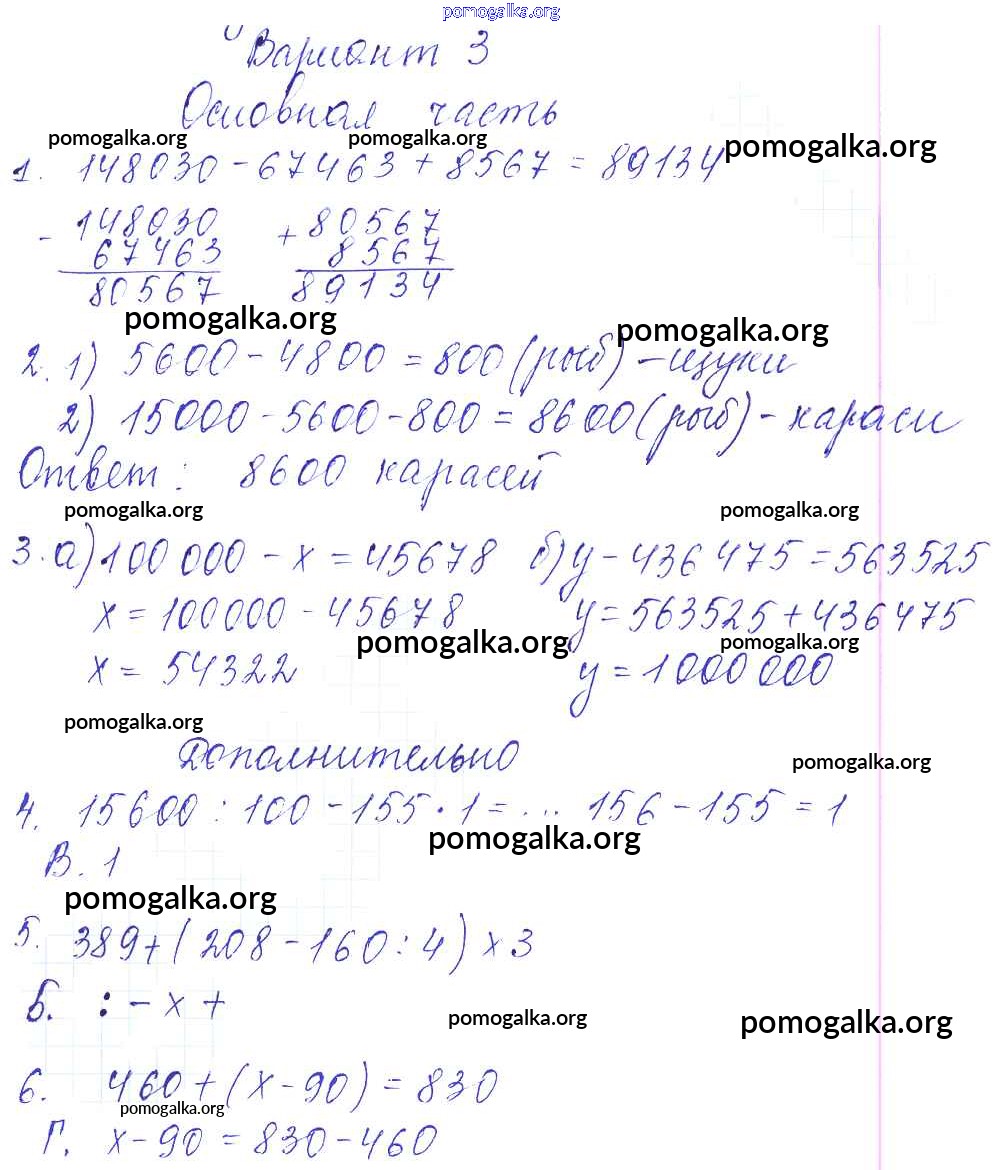 pomogalka.org
Вариант 3
Основная часть
pomogalka.org pomogalka.org pomogalka.org
1. 148030 - 67463 + 8567 = 89134
- 148030 + 80567
67463 8567
80567 89134
pomogalka.org pomogalka.org
2. 1) 5600 - 4800 = 800 (рыб) - щуки
2) 15000 - 5600 - 800 = 8600 (рыб) - караси
Ответ: 8600 карасей
pomogalka.org pomogalka.org
3. а) 100 000 - x = 45678 б) y - 436 475 = 563 525
x = 100000 - 45678 y = 563525 + 436475
pomogalka.org pomogalka.org
x = 54322 y = 1000 000
pomogalka.org
Дополнительно
pomogalka.org
4. 15600 : 100 - 155 · 1 = ... 156 - 155 = 1
pomogalka.org
В. 1
pomogalka.org
5. 389 + (208 - 160 : 4) x 3
Б. : - x +
pomogalka.org pomogalka.org
6. 460 + (x - 90) = 830
pomogalka.org
Г. x - 90 = 830 - 460